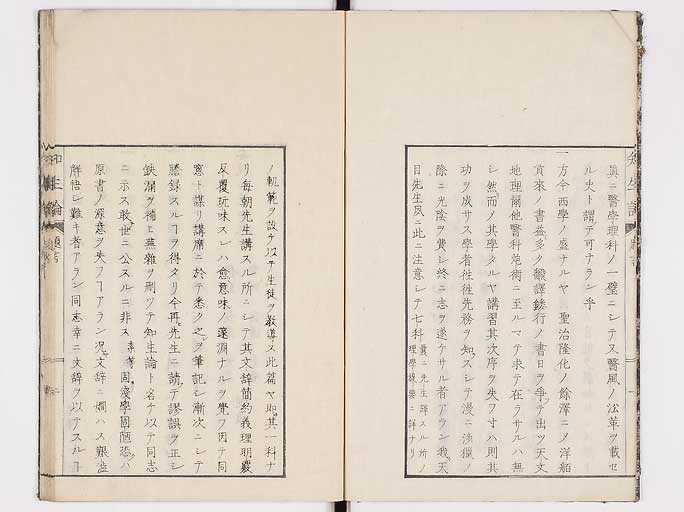 眞ニ醫學理科ノ一璧ニシテ又醫風ノ沿革ヲ載セ
ル史ト謂テ可ナラン乎
一方今西學ノ盛ナルヤ 聖治隆化ノ餘澤ニノ洋舶
貢來ノ書益多ク飜譯鏤行ノ書日ヲ爭テ出ツ天文
地理爾他醫科兵術ニ至ルマテ求テ在ラサルハ無
シ然而ノ其學タルヤ講習其次序ヲ失フ寸ハ則其
功ヲ成サス學者往往先務ヲ知ズシテ漫ニ渉獵ノ
際ニ光陰ヲ費シ終ニ志ヲ遂ケサル者アラン我天
目先生夙ニ此ニ注意シテ七科 嚢ニ先生譯スル所ノ
理學提要ニ詳ナリ
ノ軌範ヲ設ケ以テ生徒ヲ教導ス此篇ヤ即其一科ナ
リ毎朝先生講スル所ニシテ其文辞簡約義理明覈
反覆玩味スレハ愈意味ノ邃淵ナルヲ覺フ因テ同
窓ト謀リ講席ニ於テ悉ク之ヲ筆記シ漸次ニシテ
謄録スルヿヲ得タリ今再先生ニ請テ謬誤ヲ正シ
鈌漏ヲ補ヒ蕪雜ヲ刪ツテ知生論ト名ケ以テ同志
ニ示ス敢世ニ公スルニ非ス 固淺學固陋恐ハ
原書ノ深意ヲ失フヿアラン况文辞ニ嫺ハス艱澁
解悟シ難キ者アラン同志幸ニ文辞ヲ以テスルヿ
知生論
題言